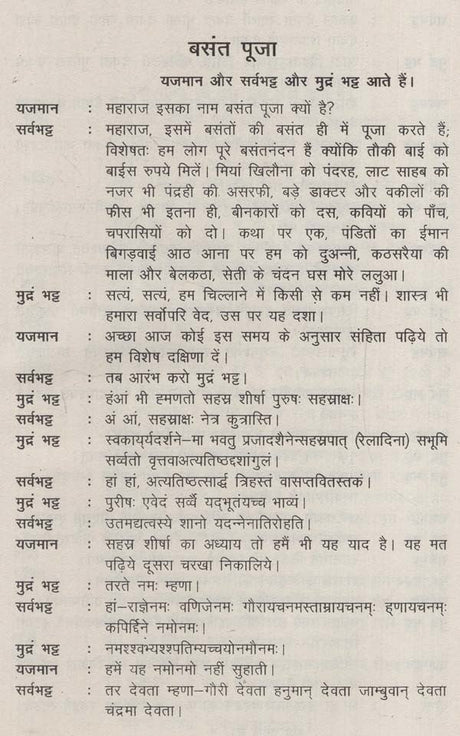 बसंत पूजा
यजमान और सर्वभट्ट और मुद्रं भट्ट आते हैं।
यजमान : महाराज इसका नाम बसंत पूजा क्यों है?
सर्वभट्ट : महाराज, इसमें बसंतों की बसंत ही में पूजा करते हैं;
विशेषतः हम लोग पूरे बसंतनंदन हैं क्योंकि तौकी बाई को
बाईस रुपये मिलें। मियां खिलौना को पंदरह, लाट साहब को
नजर भी पंद्रही की असरफी, बड़े डाक्टर और वकीलों की
फीस भी इतना ही, बीनकारों को दस, कवियों को पाँच,
चपरासियों को दो। कथा पर एक, पंडितों का ईमान
बिगड़वाई आठ आना पर हम को दुअन्नी, कठसरैया की
माला और बेलकठा, सेती के चंदन घस मोरे ललुआ।
मुद्रं भट्ट : सत्यं, सत्यं, हम चिल्लाने में किसी से कम नहीं। शास्त्र भी
हमारा सर्वोपरि वेद, उस पर यह दशा।
यजमान : अच्छा आज कोई इस समय के अनुसार संहिता पढ़िये तो
हम विशेष दक्षिणा दें।
सर्वभट्ट : तब आरंभ करो मुद्रं भट्ट।
मुद्रं भट्ट : हंआं भी ह्मणतो सहस्र शीर्षा पुरुषः सहस्राक्षः।
सर्वभट्ट : अं आं, सहस्राक्षः नेत्र कुत्रास्ति।
मुद्रं भट्ट : स्वकार्य्यदर्शने–मा भवतु प्रजादशैनेन्सहस्रपात् (रेलादिना) सभूमि
सर्व्वतो वृत्तवाअत्यतिष्ठद्दशांगुलं।
सर्वभट्ट : हां हां, अत्यतिष्ठत्सार्द्ध त्रिहस्तं वासप्तवितस्तकं।
मुद्रं भट्ट : पुरीषः एवेदं सर्व्वं यद्भूतंयच्च भाव्यं।
सर्वभट्ट : उतमद्यत्वस्ये शानो यदन्नेनातिरोहति।
यजमान : सहस्र शीर्षा का अध्याय तो हमैं भी यह याद है। यह मत
पढ़िये दूसरा चरखा निकालिये।
मुद्रं भट्ट : तरते नमः म्हणा।
सर्वभट्ट : हां–राज्ञेनमः वणिजेनमः गौरायचनमस्ताम्रायचनम्ः हूणायचनम्ः
कपिर्द्दिने नमोनमः।
मुद्रं भट्ट : नमश्श्वभ्यश्शपतिम्यच्चयोनमौनमः।
यजमान : हमें यह नमोनमो नहीं सुहाती।
सर्वभट्ट : तर देवता म्हणा–गौरी देवता हनुमान् देवता जाम्बुवान् देवता
चंद्रमा देवता।